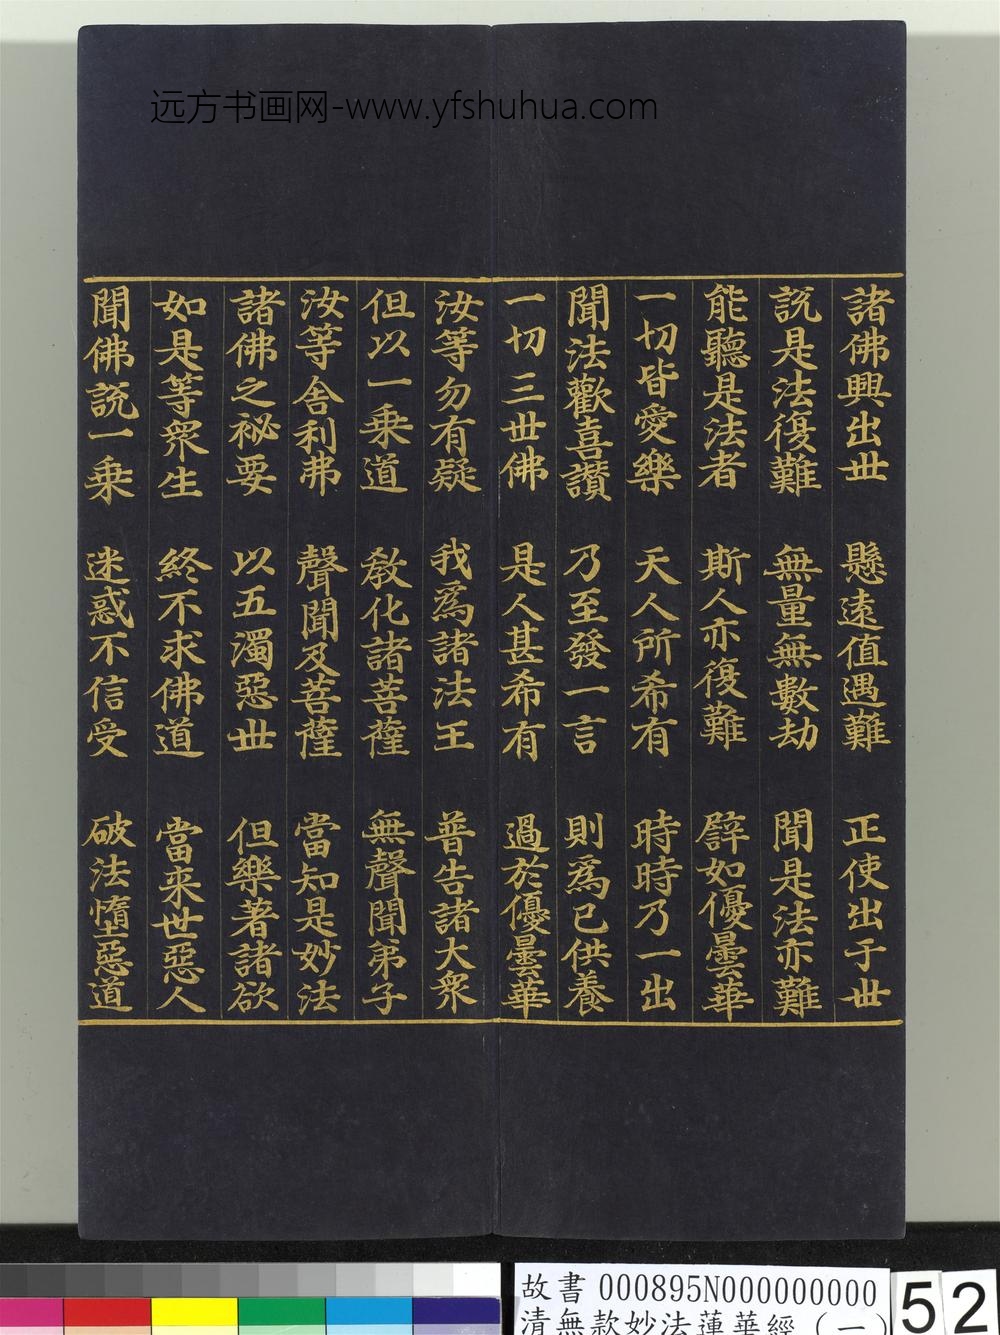 远方书画网-www.yfshuhua.com
諸佛興出世 懸遠值遇難 正使出于世
說是法復難 無量無數劫 聞是法亦難
能聽是法者 斯人亦復難 譬如優曇華
一切皆愛樂 天人所希有 時時乃一出
聞法歡喜讚 乃至發一言 則為已供養
一切三世佛 是人甚希有 過於優曇華
汝等勿有疑 我為諸法王 普告諸大衆
但以一乘道 教化諸菩薩 無聲聞弟子
汝等舍利弗 聲聞及菩薩 當知是妙法
諸佛之祕要 以五濁惡世 但樂著諸欲
如是等衆生 終不求佛道 當来世惡人
聞佛說一乘 迷惑不信受 破法墮惡道
故書 000895N000000000
清無款妙法蓮華經（一）
52